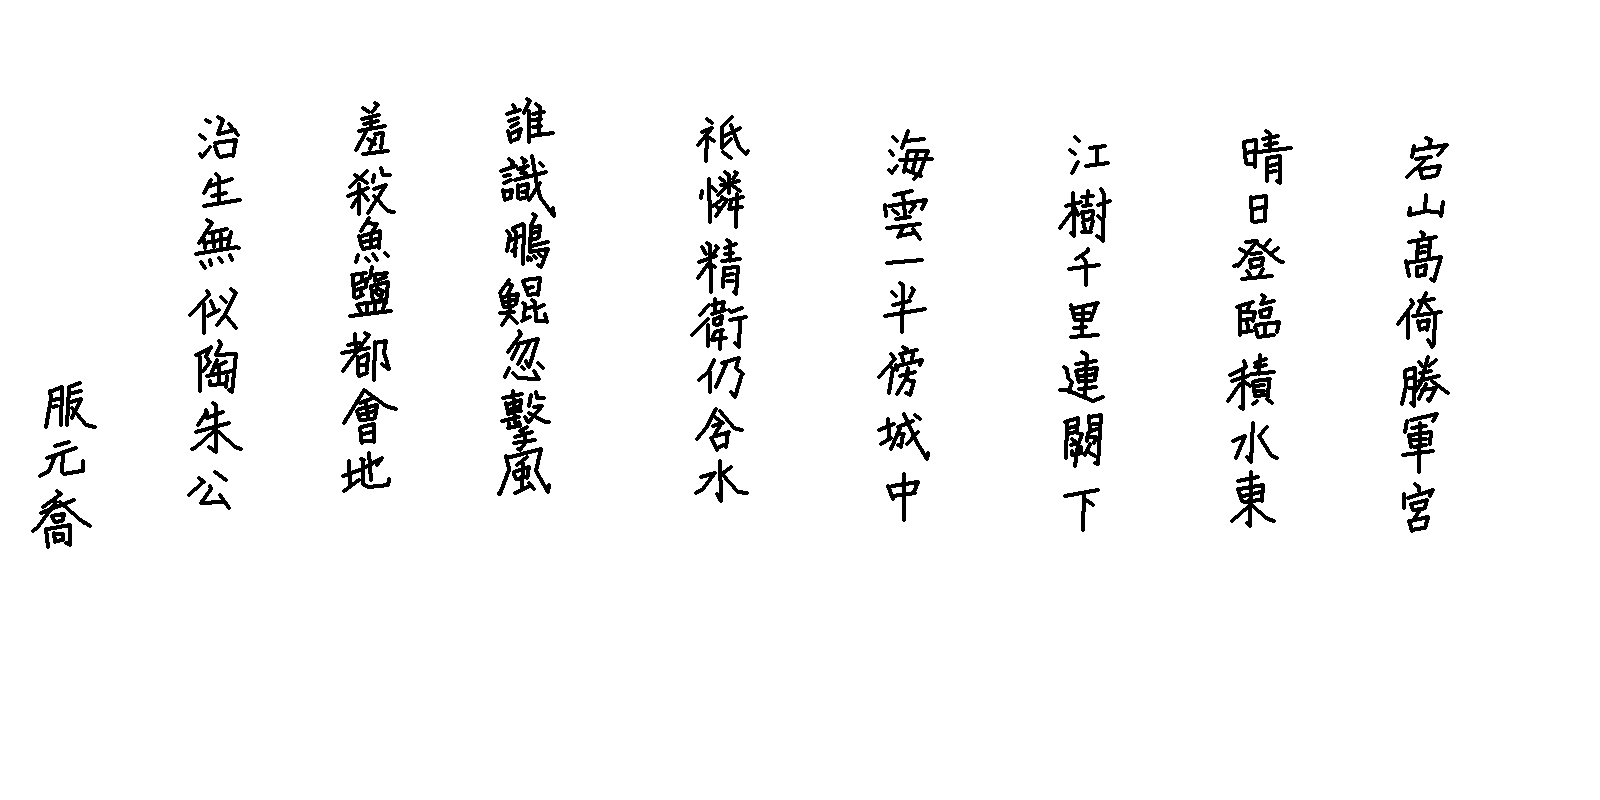 宕山高倚勝軍宮
晴日登臨積水東
江樹千里連闕下
海雲一半傍城中
祗憐精衛仍含水
誰識鵬鯤忽擊風
羞殺魚鹽都會地
治生無似陶朱公
服元喬